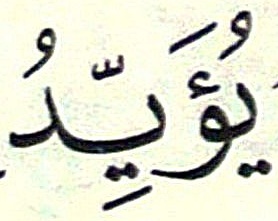 يُؤَيِّدُ